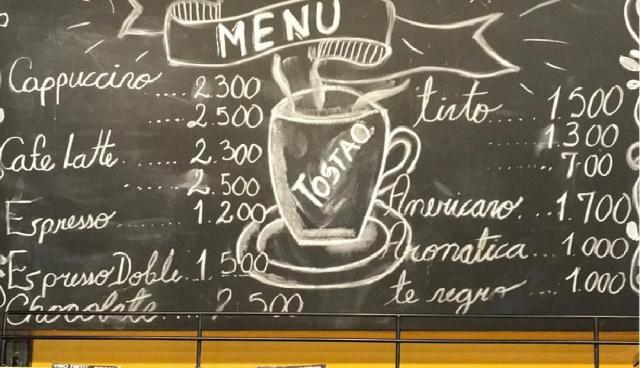 MENU
Cappuccino ..... 2.300
..... 2.500
Cafe Latte ...... 2.300
...... 2.500
Espresso ....... 1.200
Espresso Doble. 1.500
Chocolate .... 2.500
TOSTAO
tinto ..... 1.500
........ 1.300
........ 700
Americano... 1.700
Aromatica.... 1.000
te negro .... 1.000